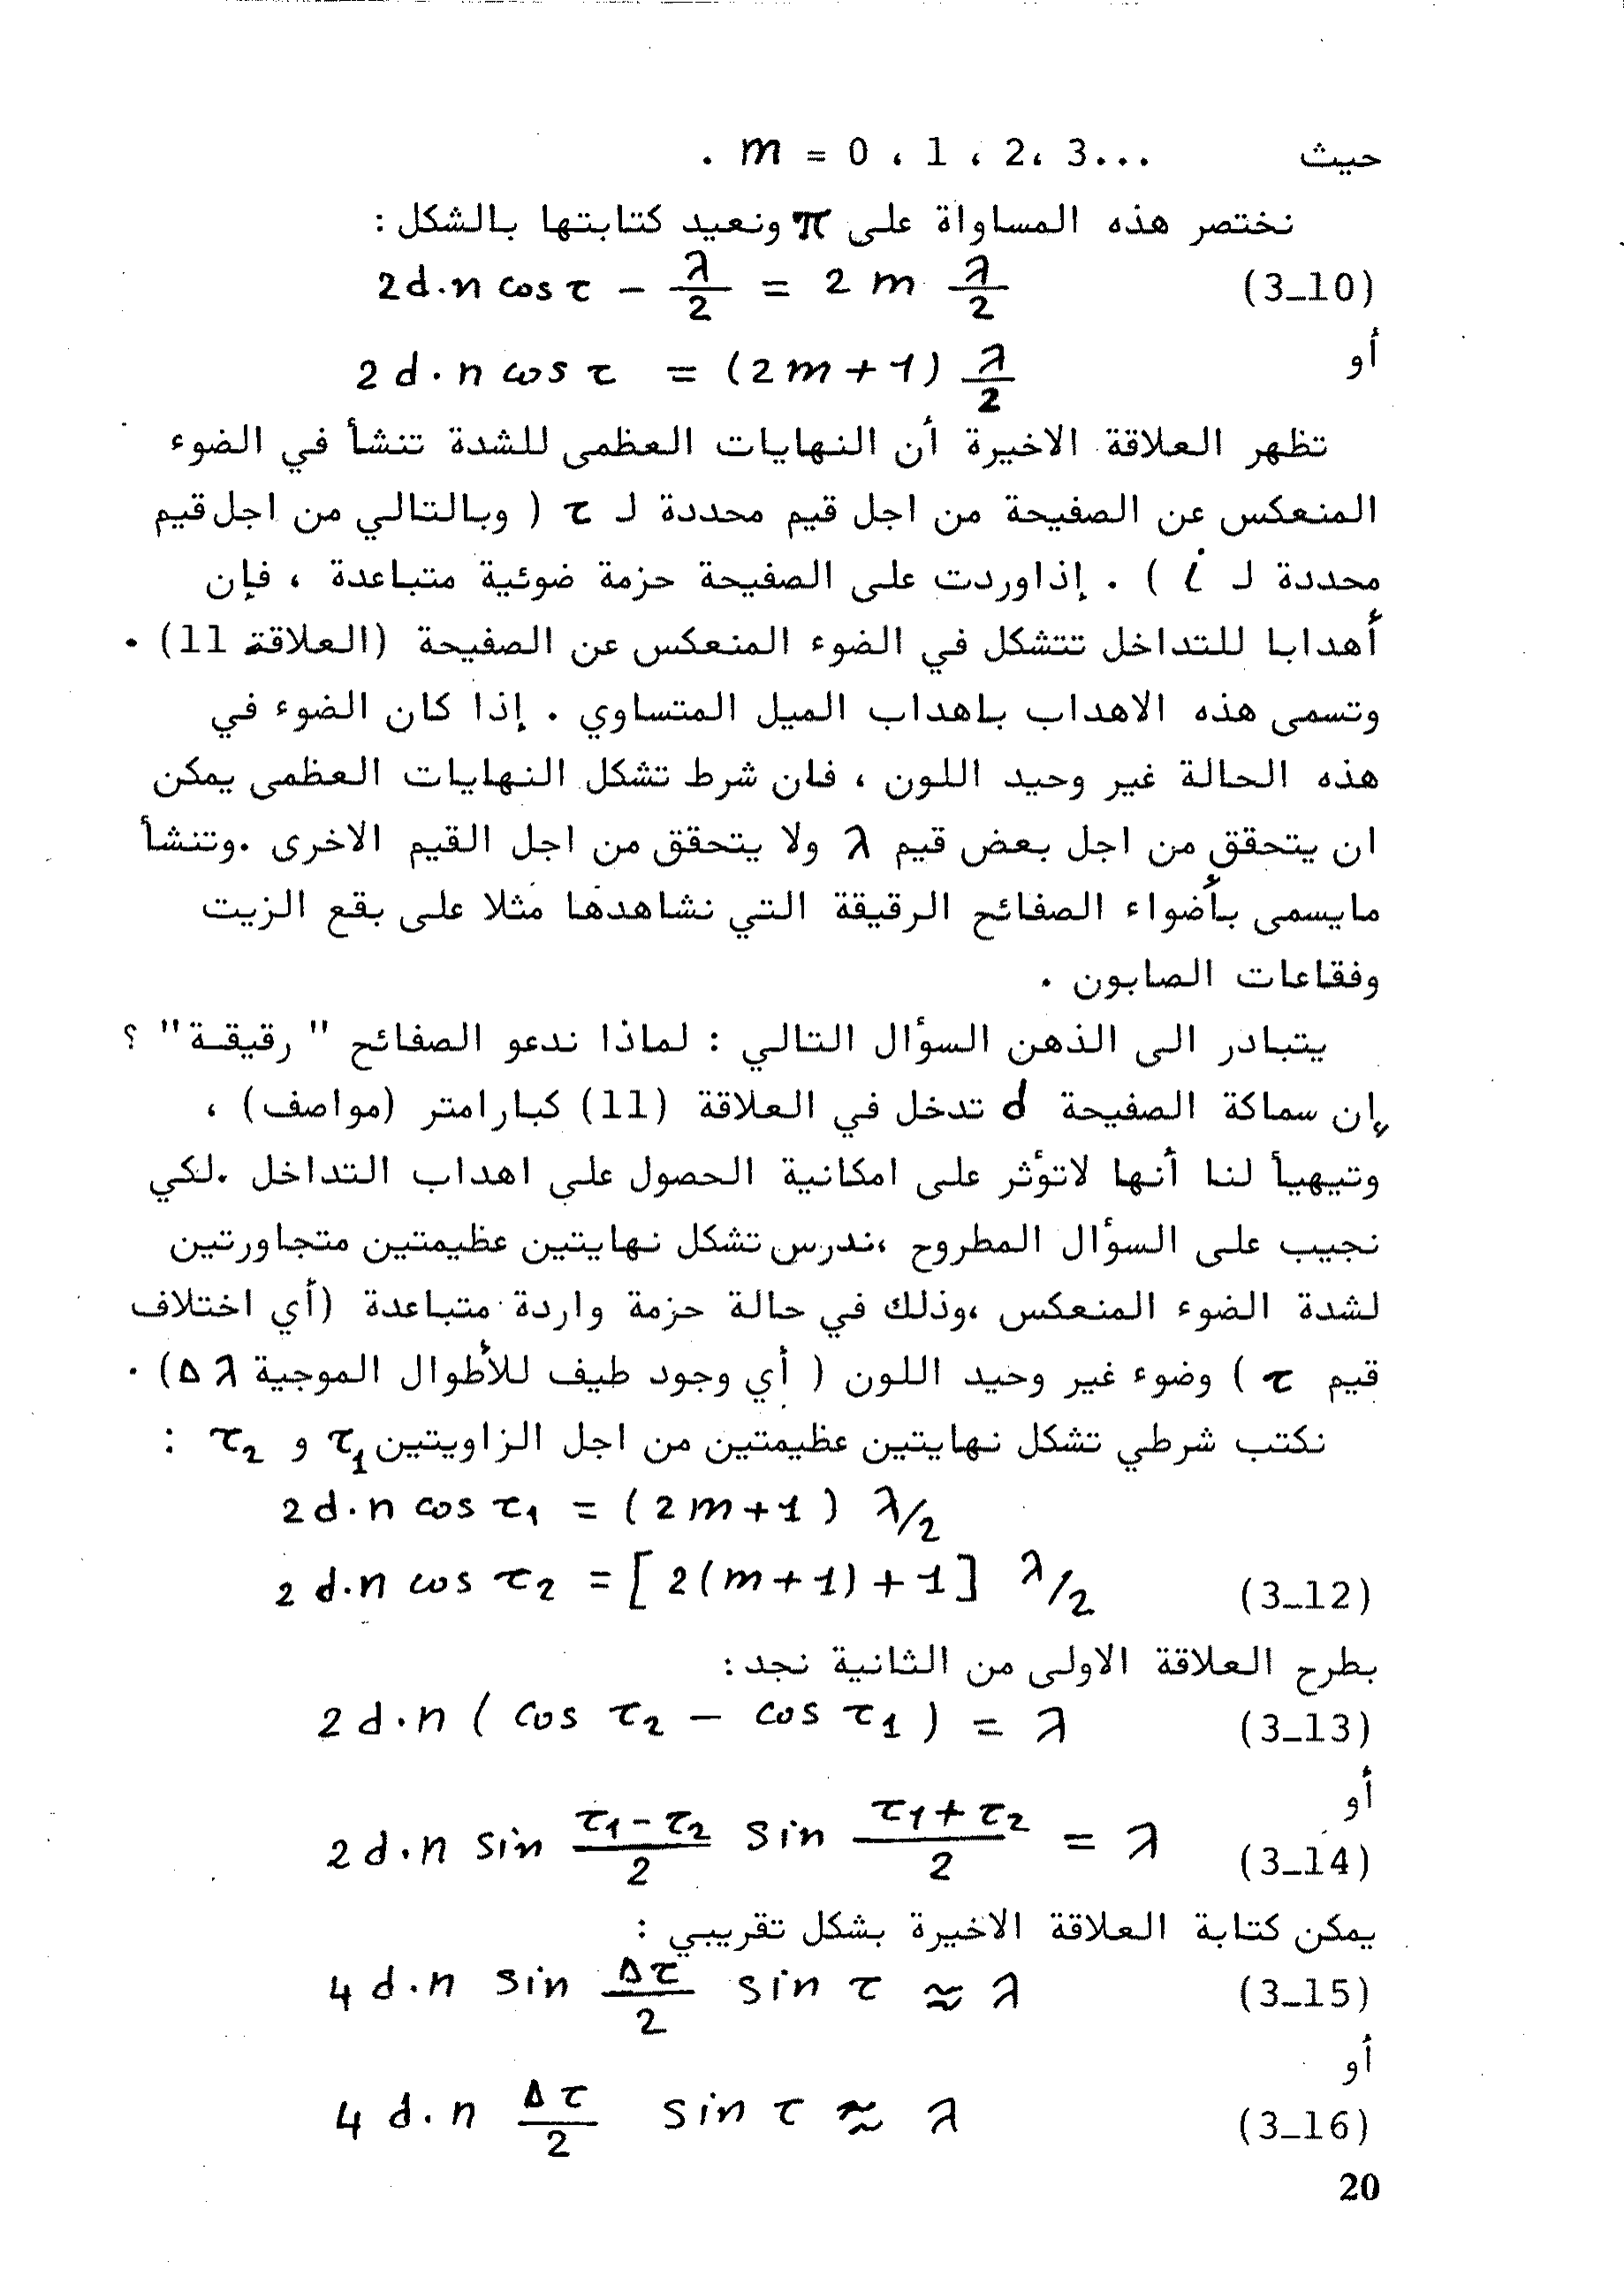 حيث m = 0 ، 1 ، 2، 3... .
نختصر هذه المساواة على π ونعيد كتابتها بالشكل :
2d.n cos τ − λ/2 = 2 m λ/2 (3_10)
أو
2 d.n cos τ = (2m+1) λ/2
تظهر العلاقة الاخيرة أن النهايات العظمى للشدة تنشأ في الضوء
المنعكس عن الصفيحة من اجل قيم محددة لـ τ ( وبالتالي من اجل قيم
محددة لـ i ) . إذاوردت على الصفيحة حزمة ضوئية متباعدة ، فإن
أهدابا للتداخل تتشكل في الضوء المنعكس عن الصفيحة (العلاقة 11) .
وتسمى هذه الاهداب باهداب الميل المتساوي . إذا كان الضوء في
هذه الحالة غير وحيد اللون ، فان شرط تشكل النهايات العظمى يمكن
ان يتحقق من اجل بعض قيم λ ولا يتحقق من اجل القيم الاخرى .وتنشأ
مايسمى بأضواء الصفائح الرقيقة التي نشاهدها مثلا على بقع الزيت
وفقاعات الصابون .
يتبادر الى الذهن السؤال التالي : لماذا ندعو الصفائح " رقيقة" ؟
إن سماكة الصفيحة d تدخل في العلاقة (11) كبارامتر (مواصف) ،
وتيهيأ لنا أنها لاتؤثر على امكانية الحصول على اهداب التداخل .لكي
نجيب على السؤال المطروح ،ندرس تشكل نهايتين عظيمتين متجاورتين
لشدة الضوء المنعكس ،وذلك في حالة حزمة واردة متباعدة (أي اختلاف
قيم τ ) وضوء غير وحيد اللون ( أي وجود طيف للأطوال الموجية Δλ) .
نكتب شرطي تشكل نهايتين عظيمتين من اجل الزاويتين τ₁ و τ₂ :
2d.n cos τ₁ = (2m+1) λ/2
2 d.n cos τ₂ = [2(m+1)+1] λ/2 (3_12)
بطرح العلاقة الاولى من الثانية نجد :
2 d.n ( cos τ₂ − cos τ₁ ) = λ (3_13)
أو
2 d.n sin (τ₁−τ₂)/2 sin (τ₁+τ₂)/2 = λ (3_14)
يمكن كتابة العلاقة الاخيرة بشكل تقريبي :
4 d.n sin Δτ/2 sin τ ≈ λ (3_15)
أو
4 d.n Δτ/2 sin τ ≈ λ (3_16)
20